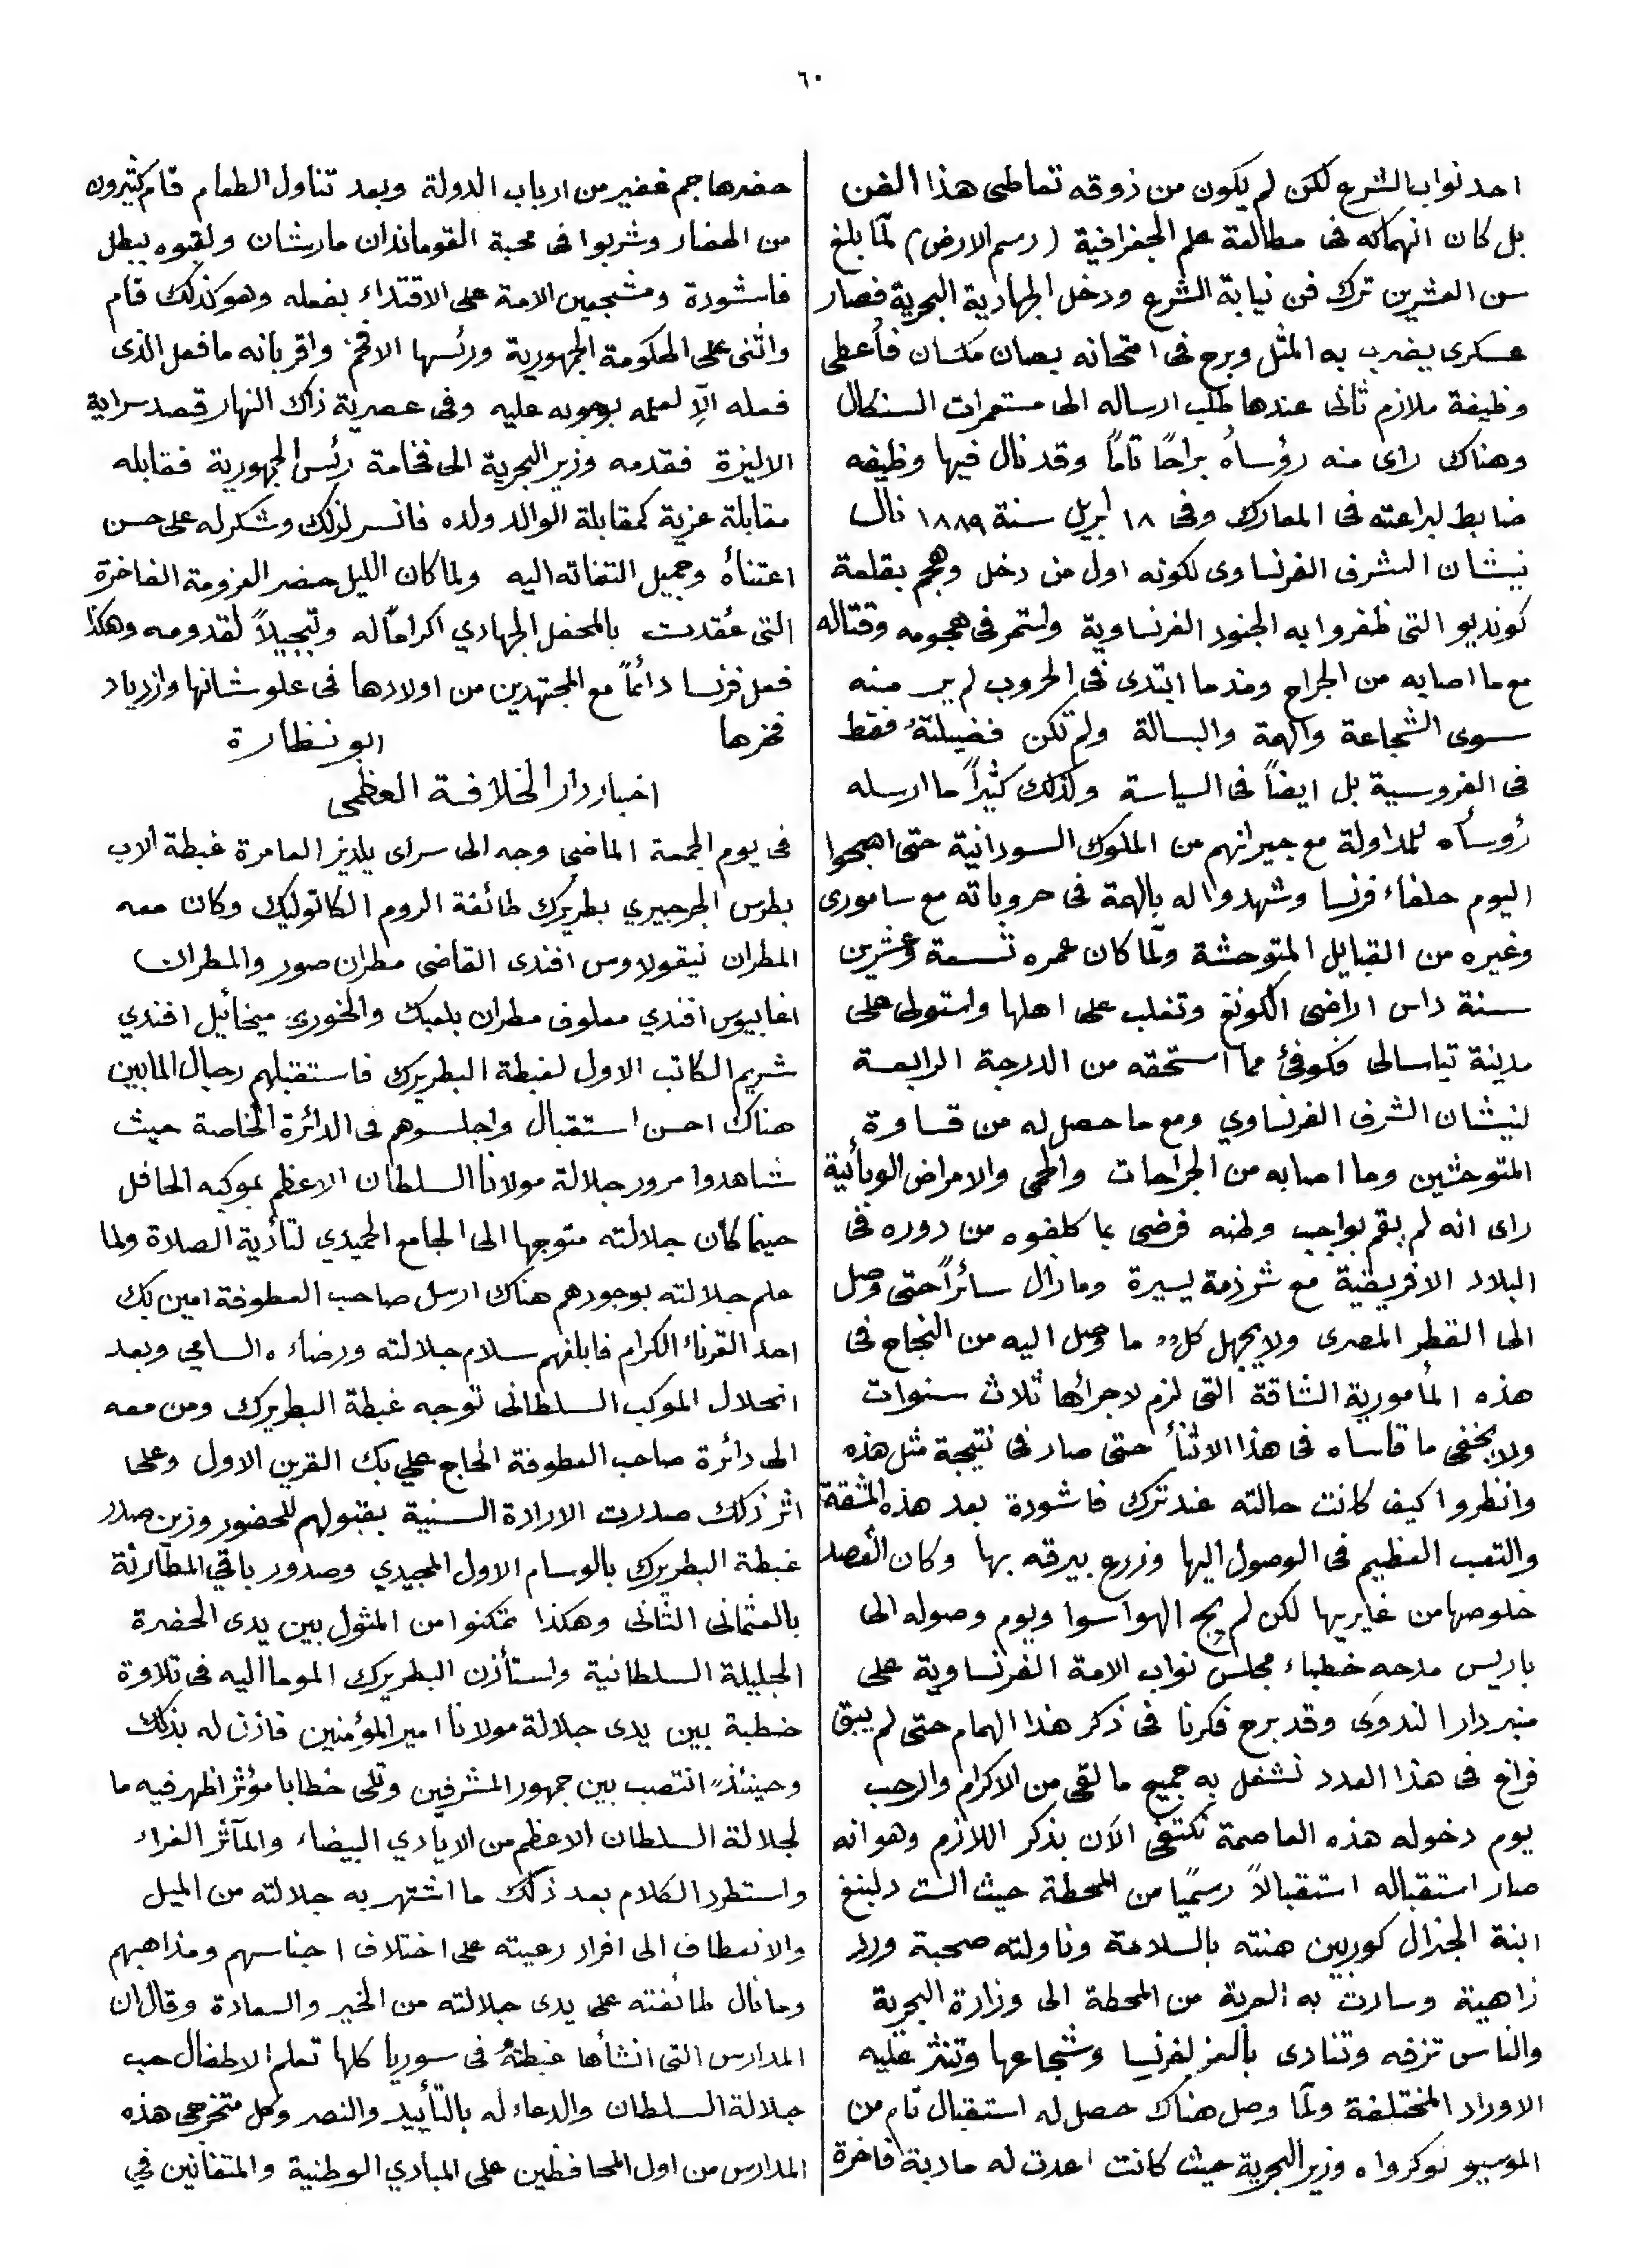 ٦٠
احد نواب الشرع لكن لم يكون من ذوقه تعاطى هذا الفن
بل كان انهماكه فى مطالعة علم الجغرافية (رسم الارض) لمّا بلغ
سن العشرين ترك فن نيابة الشرع ودخل الجهادية البحرية فصار
عسكرى يضرب به المثل وبرع فى امتحانه بصان مكسان فأعطى
وظيفة ملازم ثانى عندها طلب ارساله الى مستعمرات السنكال
وهناك راى منه رؤساه براحًا تامًا وقد نال فيها وظيفه
ضابط لبراعته فى المعارك وفى ١٨ ابريل سنة ١٨٨٩ نال
نيشان الشرف الفرنساوى لكونه اول من دخل وهجم بقلعة
كونديو التى ظفروا به الجنود الفرنساوية واستمر فى هجومه وقتاله
مع ما اصابه من الجراح ومند ما ابتدى فى الحروب لم ير منه
سوى الشجاعة والهمة والبسالة ولم تكن فضيلته فقط
فى الفروسية بل ايضاً فى السياسة ولذلك كثيراً ما ارسله
رؤساه للمداولة مع جيرانهم من الملوك السودانية حتى اصبحوا
اليوم حلفاء فرنسا وشهدوا له بالهمة فى حروباته مع سامورى
وغيره من القبايل المتوحشة ولمّا كان عمره تسعة وعشرين
سنة داس اراضى الكونغ وتغلب على اهلها واستولى على
مدينة تياسالى فكوفئ مما استحقه من الدرجة الرابعة
لنيشان الشرف الفرنساوي ومع ما حصل له من قساوة
المتوحشين وما اصابه من الجراحات والحمى والامراض الوبائية
راى انه لم يقم بواجب وطنه فرضى بما كلفوه من دوره فى
البلاد الافريقية مع شرذمة يسيرة وما زال سائراً حتى وصل
الى القطر المصرى ولا يجهل كل ما وصل اليه من النجاح فى
هذه المأمورية الشاقة التى لزم لاجرائها ثلاث سنوات
ولا يخفى ما قاساه فى هذا الاثنأ حتى صار فى نتيجة مثل هذه
وانظروا كيف كانت حالته عند ترك فاشودة بعد هذه المشقة
والتعب العظيم فى الوصول اليها وزرع بيرقه بها وكان القصد
خلوصها من غابريها لكن لم يجح الهواسوا ويوم وصوله الى
باريس مدحه خطباء مجلس نواب الامة الفرنساوية على
منبر دار الندوى وقد برح فكرنا فى ذكر هذا الهمام حتى لم يبق
فراغ فى هذا العدد نشغل به جميع ما لقى من الاكرام والرحب
يوم دخوله هذه العاصمة نكتفى الآن بذكر اللازم وهو انه
صار استقباله استقبالاً رسميًا من المحطة حيث الست دلبنغ
ابنة الجنرال كوربين هنته بالسلامة وناولته صحبة ورد
زاهية وسارت به العربة من المحطة الى وزارة البحرية
والناس تزفه وتنادى بالعز لفرنسا وشجاعها وتنثر عليه
الاوراد المختلفة ولمّا وصل هناك حصل له استقبال تام من
الموسيو لوكرواه وزير البحرية حيث كانت اعدت له مادبة فاخرة
حضرها جم غفير من ارباب الدولة وبعد تناول الطعام قام كثيرون
من الحضار وشربوا فى محبة القوماندان مارشان ولقبوه ببطل
فاشودة ومشجعين الامة على الاقتداء بفعله وهو كذلك قام
واثنى على الحكومة الجمهورية ورئسها الافخم واقر بانه ما فعل الذى
فعله الاّ لعلمه بوجوبه عليه وفى عصرية ذاك النهار قصد سراية
الاليزة فقدمه وزير البحرية الى فخامة رئس الجمهورية فقابله
مقابلة عزية كمقابلة الوالد ولده فانسر لذلك وشكر له على حسن
اعتناه وجميل التفاته اليه ولما كان الليل حضر العزومة الفاخرة
التى عُقدت بالمحفل الجهادي اكراماً له وتبجيلاً لقدومه وهكذا
فعل فرنسا دائماً مع المجتهدين من اولادها فى علو شانها وازدياد
فخرها ابو نظارة
اخبار دار الخلافة العظمى
فى يوم الجمعة الماضى وجه الى سراى يلديز العامرة غبطة الاب
بطرس الجرجيري بطريرك طائفة الروم الكاتوليك وكان معه
المطران نيقولاوس افندى القاضى مطران صور والمطران
اغابيوس افندي معلوف مطران بلعبك والخورى ميخائيل افندي
شريم الكاتب الاول لغبطة البطريرك فاستقبلهم رجال المابين
هناك احسن استقبال واجلسوهم فى الدائرة الخاصة حيث
شاهدوا مرور جلالة مولانا السلطان الاعظم بموكبه الحافل
حينما كان جلالته متوجها الى الجامع الحميدي لتأدية الصلاة ولما
علم جلالته بوجودهم هناك ارسل صاحب العطوفة امين بك
احد القرناء الكرام فابلغهم سلام جلالته ورضاءه السامي وبعد
انحلال الموكب السلطانى توجه غبطة البطريرك ومن معه
الى دائرة صاحب العطوفة الحاج علي بك القرين الاول وعلى
اثر ذلك صدرت الارادة السنية بقبولهم للحضور وزين صدر
غبطة البطريرك بالوسام الاول المجيدي وصدور باقي المطارنة
بالعثمانى الثانى وهكذا تمكنوا من المثول بين يدى الحضرة
الجليلة السلطانية واستأذن البطريرك الموما اليه فى تلاوة
خطبة بين يدى جلالة مولانا امير المؤمنين فاذن له بذلك
وحينئذٍ انتصب بين جمهور المشرفين وتلى خطابا مؤثر اظهر فيه ما
لجلالة السلطان الاعظم من الايادي البيضاء والمآثر الغراء
واستطرد الكلام بعد ذلك ما اشتهر به جلالته من الميل
والانعطاف الى افراد رعيته على اختلاف اجناسهم ومذاهبهم
وما نال طائفته على يدى جلالته من الخير والسعادة وقال ان
المدارس التى انشأها غبطته فى سوريا كلها تعلم الاطفال حب
جلالة السلطان والدعاء له بالتأييد والنصر وكل متخرجى هذه
المدارس من اول المحافظين على المبادي الوطنية والمتفانين في